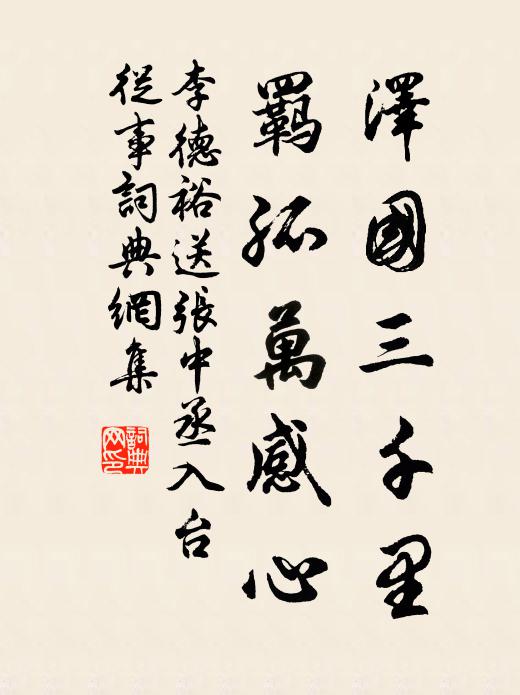 澤國三千里
羈孤萬感心
李德裕送張中丞入台
從事詞典網集
詞典网印